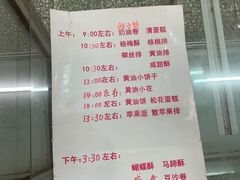 上午: 9:00左右: 奶油卷 清蛋糕
10:30左右: 杨梅酥 核桃排
椰丝排 黄油排
10:30左右: 咸甜酥
12:00左右: 黄油小饼干
14:00左右: 黄油小花
14:00左右: 黄油饼 松花蛋糕
13:30左右: 苹果派 散苹果排
下午: 3:30左右:
蝴蝶酥 马蹄酥
豆沙卷